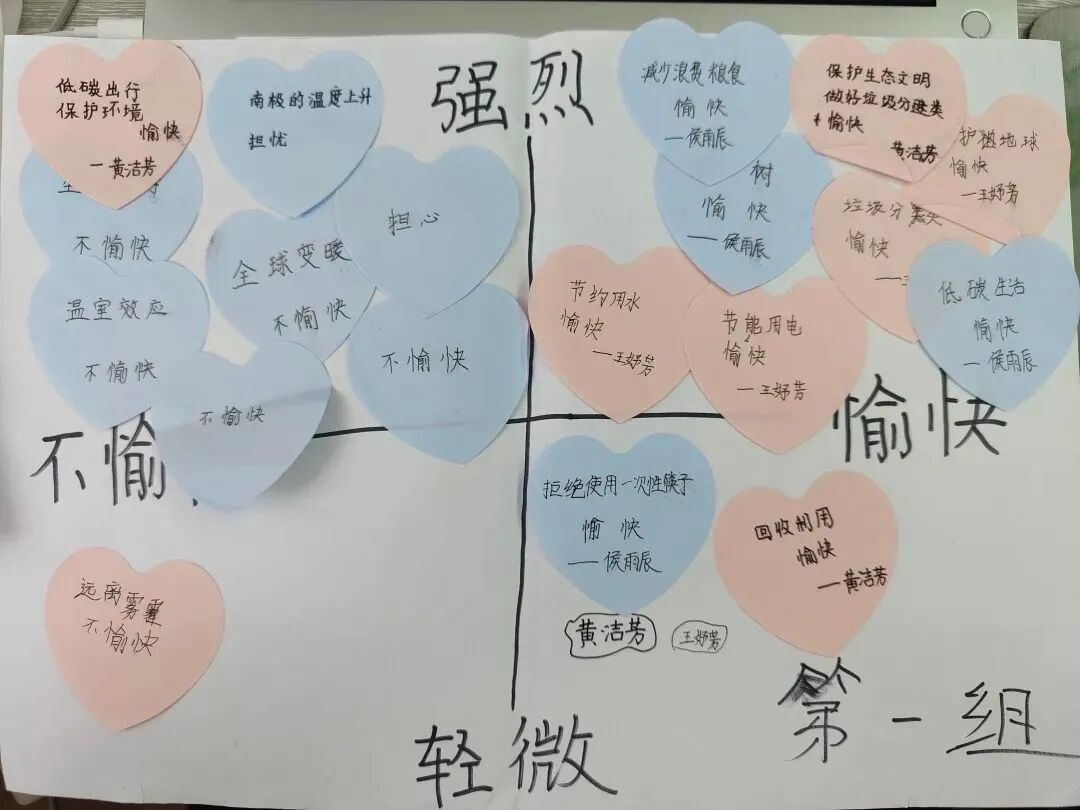 强烈
低碳出行
保护环境
愉快
一黄洁芳
南极的温度上升
担忧
不愉快
温室效应
不愉快
全球变暖
不愉快
担心
不愉快
不愉快
减少浪费粮食
愉快
——侯雨辰
树
愉快
——侯雨辰
保护生态文明
做好垃圾分类
愉快
黄洁芳
护祖地球
愉快
—王妤芳
垃圾分类
愉快
—王
节约用水
愉快
—王妤芳
节能用电
愉快
—王妤芳
低碳生活
愉快
—侯雨辰
不愉
愉快
拒绝使用一次性筷子
愉快
——侯雨辰
回收利用
愉快
—黄洁芳
远离雾霾
不愉快
黄洁芳
王妤芳
轻微
第一组